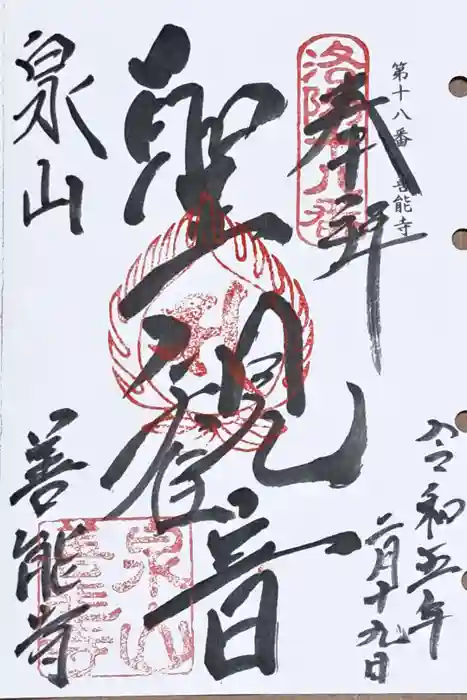 第十八番 善能寺
洛陽十八番
奉拝
令和五年
二月十九日
聖観音
泉山
善能寺
泉山
善能寺